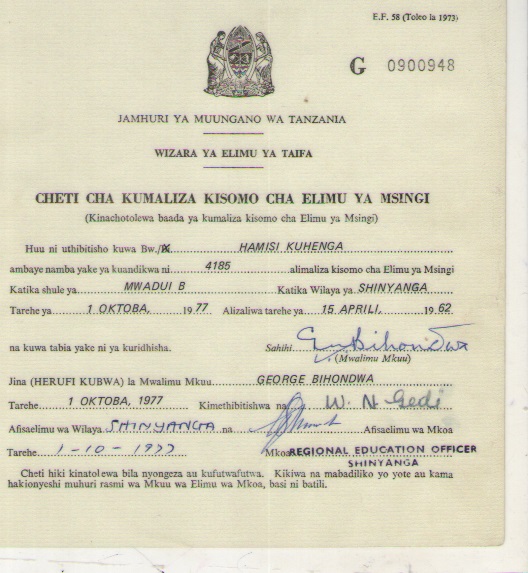 E.F. 58 (Toleo la 1973)
G 0900948
JAMHURI YA MUUNGANO WA TANZANIA
WIZARA YA ELIMU YA TAIFA
CHETI CHA KUMALIZA KISOMO CHA ELIMU YA MSINGI
(Kinachotolewa baada ya kumaliza kisomo cha Elimu ya Msingi)
Huu ni uthibitisho kuwa Bw./ HAMISI KUHENGA
ambaye namba yake ya kuandikwa ni 4185 alimaliza kisomo cha Elimu ya Msingi
Katika shule ya MWADUI B Katika Wilaya ya SHINYANGA
Tarehe ya 1 OKTOBA, 1977 Alizaliwa tarehe ya 15 APRILI, 1962
na kuwa tabia yake ni ya kuridhisha. Sahihi Bihondwa
(Mwalimu Mkuu)
Jina (HERUFI KUBWA) la Mwalimu Mkuu GEORGE BIHONDWA
Tarehe 1 OKTOBA, 1977 Kimethibitishwa na W. N. Gedi
Afisaelimu wa Wilaya SHINYANGA na Afisaelimu wa Mkoa
Tarehe 1-10-1977 Mkoa REGIONAL EDUCATION OFFICER
SHINYANGA
Cheti hiki kinatolewa bila nyongeza au kufutwafutwa. Kikiwa na mabadiliko yo yote au kama
hakionyeshi muhuri rasmi wa Mkuu wa Elimu wa Mkoa, basi ni batili.